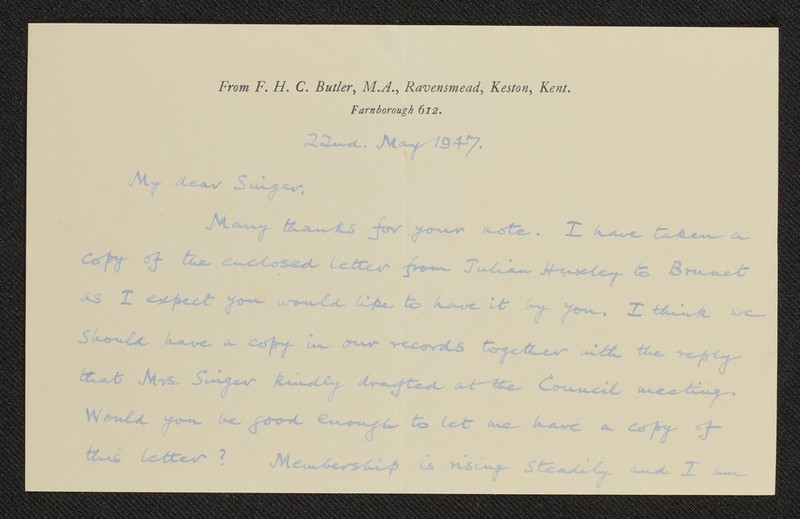 From F. H. C. Butler, M.A., Ravensmead, Keston, Kent.
Farnborough 612.
22nd. May 1947.
My dear Singer,
Many thanks for your note. I have taken a
copy of the enclosed letter from Julian Huxley to Brunet
as I expect you would like to have it by you. I think we
should have a copy in our records together with the reply
that Mrs. Singer kindly drafted at the Council meeting.
Would you be good enough to let me have a copy of
this letter? Membership is rising steadily and I am